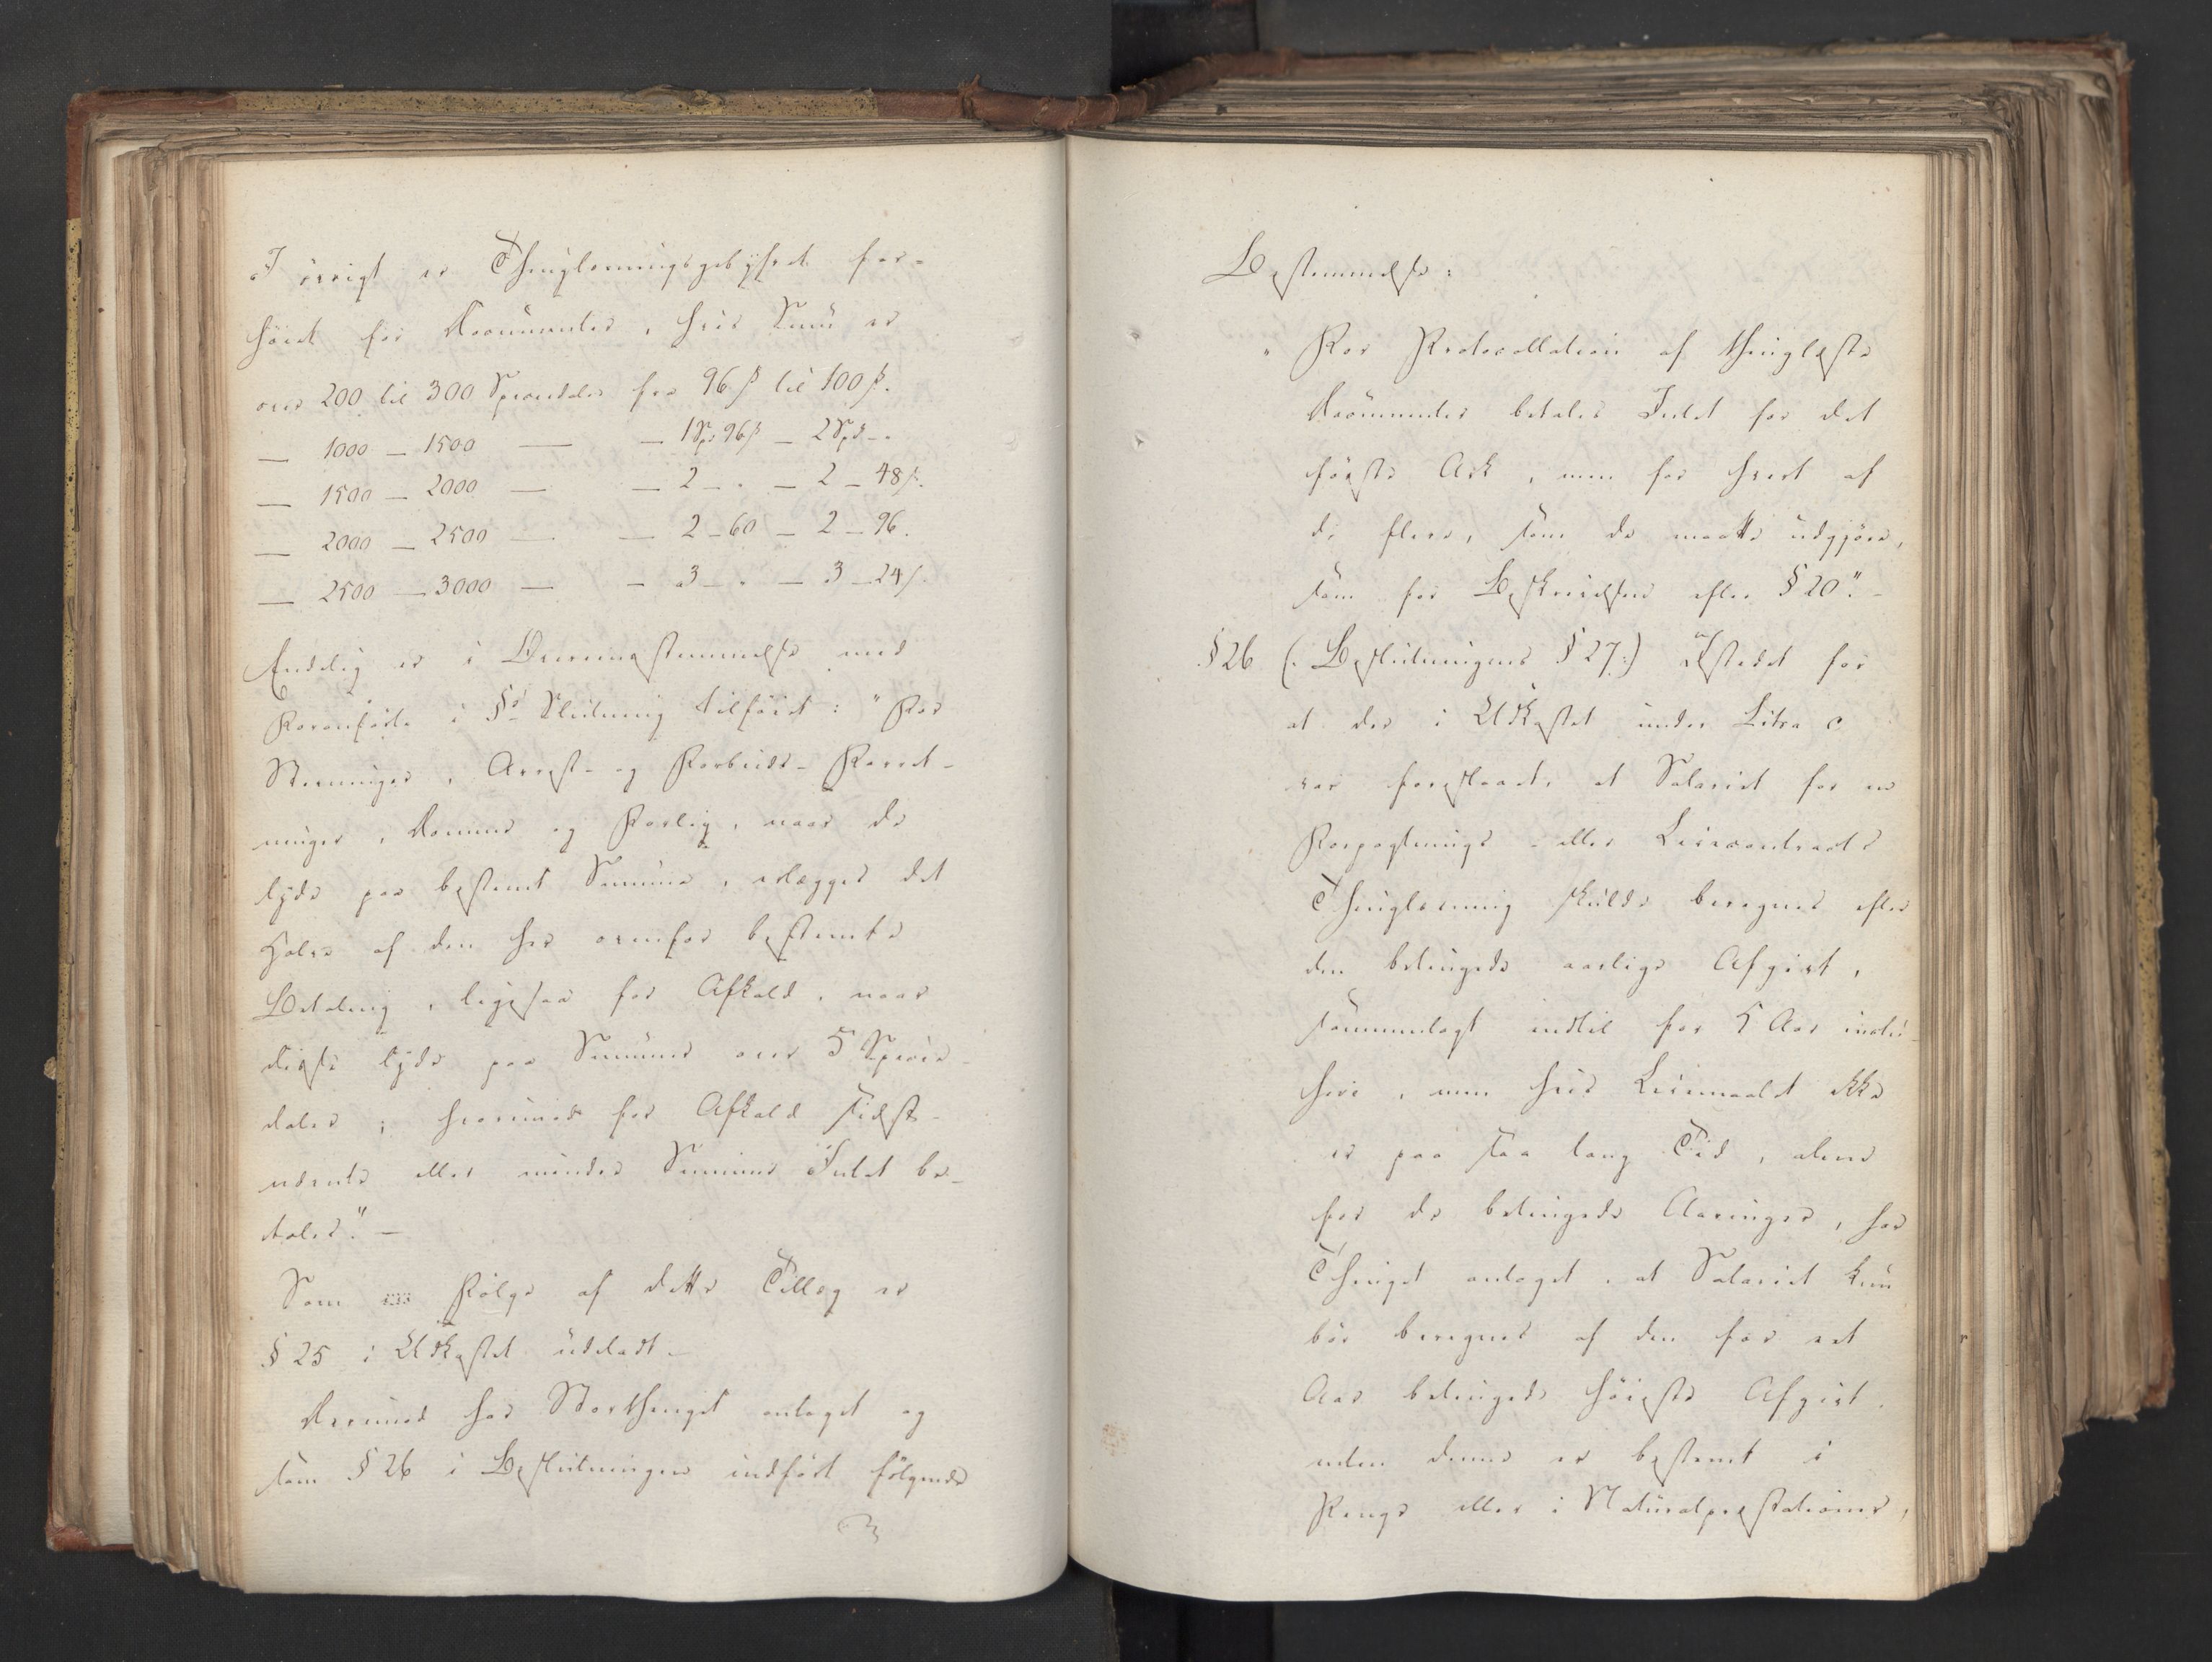 I övrigt er Thinglæsningsgebyhret for-
höiet for Documenter, hvis Sum er
over 200 til 300 Speciedaler fra 96 ß til 100 ß.
— 1000 — 1500 — — 1 Sp: 96 ß — 2 Spd -.
— 1500 — 2000 — — 2 - " — 2 - 48 ß.
— 2000 — 2500 — — 2 - 60 — 2 - 96.
— 2500 — 3000 — — 3 - " — 3 - 24 ß.
Endelig er i Overeensstemmelse med
Foranförte i §s Slutning tilföiet: "For
Stevninger, Arrest- og Forbuds-Forret-
ninger, Domme og Forlig, naar de
lyde paa bestemt Summa, erlægges det
Halve af den her ovenfor bestemte
Betaling, ligesaa for Afkald, naar
disse lyde paa Summer over 5 Specie-
daler; hvorimod for Afkald sidst-
nævnte eller mindre Summer Intet be-
tales." —
Som Fölge af dette Tillæg er
§ 25 i Udkastet udeladt. —
Derimod har Storthinget antaget og
som § 26 i Beslutningen indfört fölgende
Bestemmelse:
"For Protocollation af thinglæste
Documenter betales Intet for det
förste Ark, men for hvert af
de flere, som de maatte udgjöre,
som for Beskrivelsen efter § 20". -
§ 26 (: Beslutningens § 27:) Istedet for
at der i Udkastet under Litra c
var foreslaaet, at Salariet for en
Forpagtnings- eller Leiecontracts
Thinglæsning skulde beregnes efter
den betingede aarlige Afgivt,
sammenlagt indtil for 5 Aar inclu-
sive, men hvis Leiemaalet ikke
er paa saa lang Tid, alene
for de betingede Aaringer, har
Thinget antaget, at Salariet kun
bör beregnes af den for eet
Aar betingede höieste Afgivt,
enten denne er bestemt i
Penge eller i Naturalpræstationer,